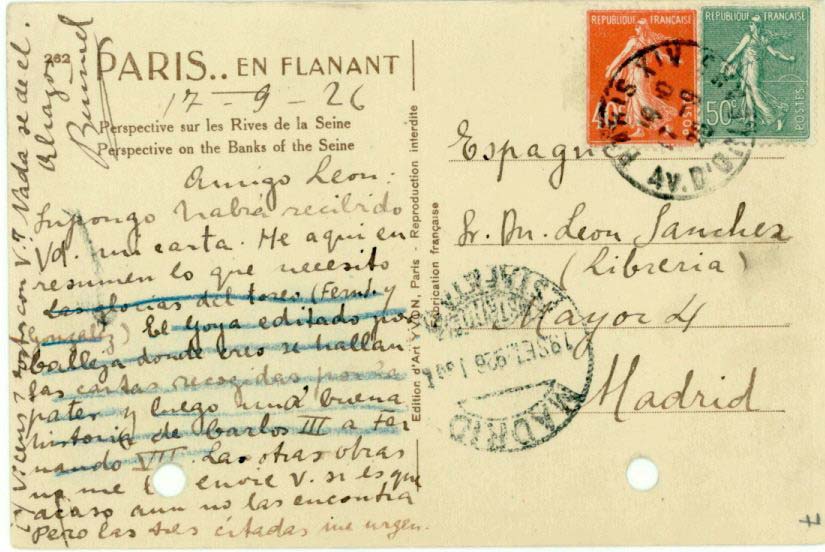 262
PARIS.. EN FLANANT
17-9-26
Perspective sur les Rives de la Seine
Perspective on the Banks of the Seine
Amigo Leon:
Supongo habrá recibido
Vd. mi carta. He aqui en
resumen lo que necesito
Las glorias del toreo (Fern. y
Gonzalez) El Goya editado por
Calleja donde creo se hallan
las cartas recogidas por Za
pater y luego una buena
historia de Carlos III a Fer
nando VII. Las otras obras
no me envie V. si es que
acaso aun no las encontra
Pero las tres citadas me urgen.
¿y Vicens? con V.? Nada se de el.
Abrazos
Bunuel
Edition d'Art YVON, Paris - Reproduction interdite
Fabrication française
REPUBLIQUE FRANÇAISE
40c
POSTES
REPUBLIQUE FRANÇAISE
50c
POSTES
PARIS XIV
AV. D'ORLEANS
Espagne
Sr. Dn. Leon Sanchez
(Libreria)
Mayor 4
Madrid
19 SET. 926
MADRID